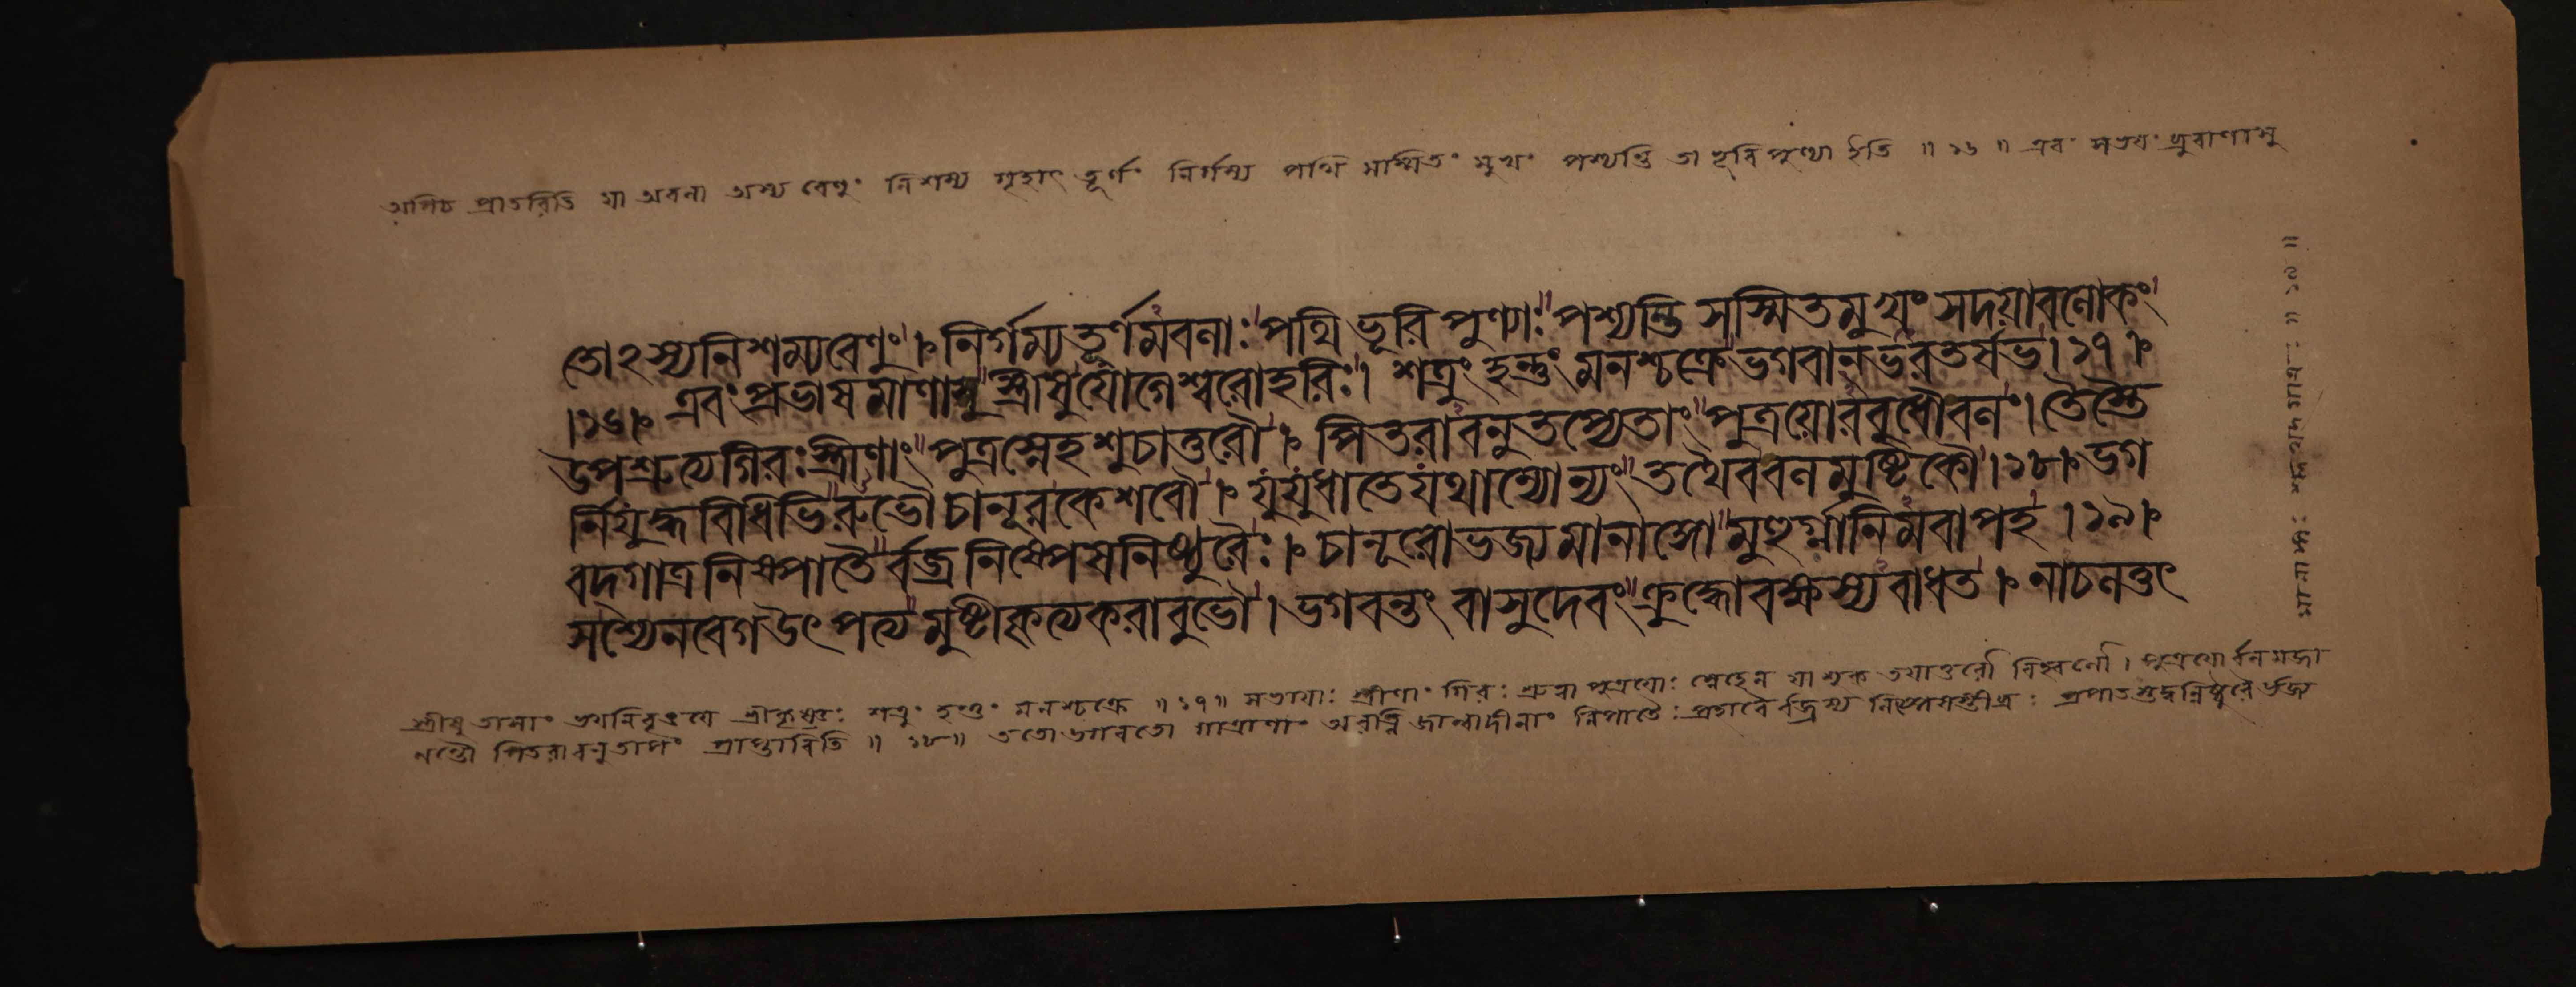 অপিচ প্রাতরিতি যা অবলা অস্য বেণুং নিশম্য গৃহাৎ তূর্ণং নির্গম্য পথি সস্মিতং মুখং পশ্যন্তি তা ভূরিপুণ্যা ইতি ॥ ১৬ ॥ এবং সভয়ং ব্রুবাণাসু
তোঽস্যনিশম্যবেণুং । নির্গম্যতূর্ণমবলাঃ পথি ভূরি পুণ্যাঃ পশ্যন্তি সস্মিতমুখং সদয়াবলোকং
।১৬। এবং প্রভাষমাণাসু স্ত্রীষু যোগেশ্বরোহরিঃ। শত্রুং হন্তুং মনশ্চক্রে ভগবান্ ভরতর্ষভ।১৭।
উপশ্রুত্যগিরঃ স্ত্রীণাং পুত্রস্নেহশুচাতুরৌ । পিতরাবনুতপ্যেতাং পুত্রয়োরবুধৌবলং। তৈস্তৈ
র্নিযুদ্ধবিধিভিরুভৌ চানূরকেশবৌ । যুযুধাতেযথান্যোন্যং তথৈববলমুষ্টিকৌ।১৮। ভগ
বদ্গাত্রনিষ্পাতৈর্বজ্রনিষ্পেষনিষ্ঠুরৈঃ । চানূরোভজ্যমানাঙ্গো মুহুর্গ্লানিমবাপহ ।১৯।
সশ্যেনবেগউৎপত্য মুষ্টীকৃত্যকরাবুভৌ। ভগবন্তং বাসুদেবং ক্রুদ্ধোবক্ষস্যবাধত । নাচলত্তৎ
স্ত্রীষু তাসাং শ্রীকৃষ্ণঃ শত্রুং হন্তুং মনশ্চক্রে ॥ ১৭॥ সভয়াঃ স্ত্রীণাং গিরঃ শ্রুত্বা পুত্রয়োঃ স্নেহেন যা শুক্ তয়াতুরৌ বিহ্বলৌ। পুত্রয়োর্বলমজা
নন্তৌ পিতরাবনুতাপং প্রাপ্তাবিতি ॥ ১৮॥ ততোভগবতো গাত্রাণাং অরত্নি জান্বাদীনাং নিপাতৈঃ